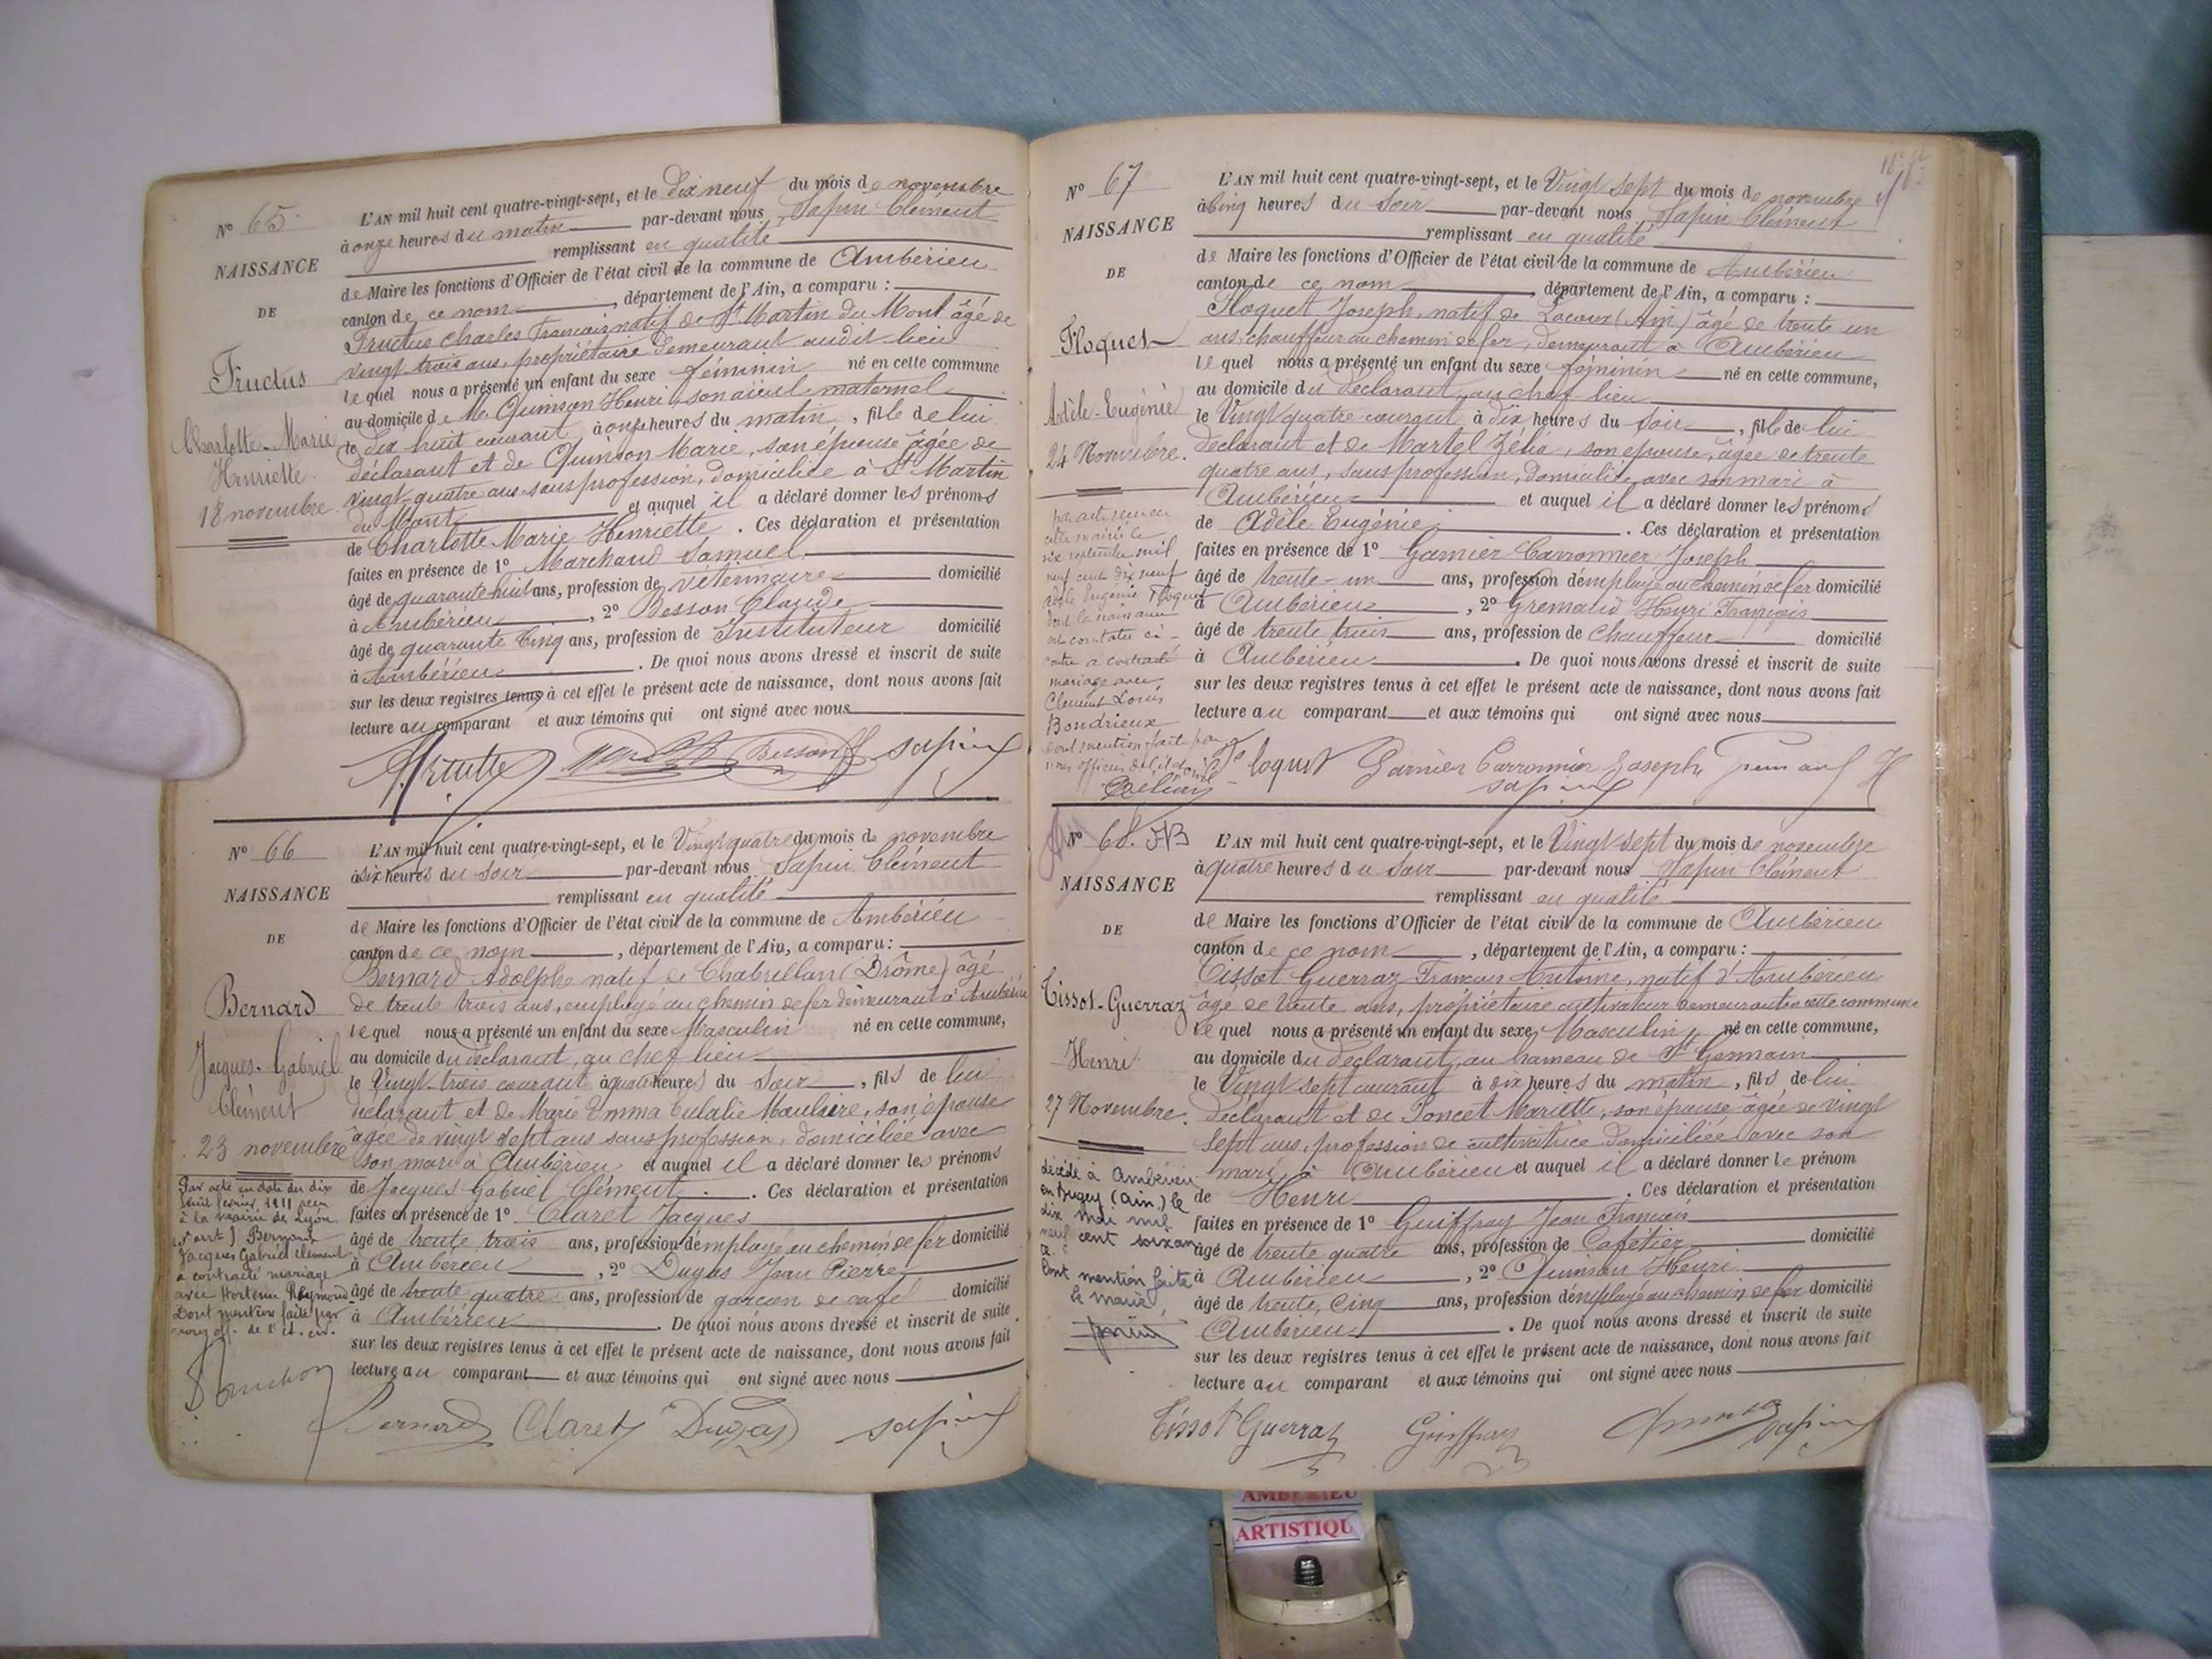 N° 65
NAISSANCE
DE
Fructus
Charlotte-Marie
Henriette
18 novembre
L'AN mil huit cent quatre-vingt-sept, et le Dix neuf du mois de novembre
à onze heures du matin par-devant nous Sapin Clément
remplissant en qualité
de Maire les fonctions d'Officier de l'état civil de la commune de Ambérieu
canton de ce nom, département de l'Ain, a comparu :
Fructus Charles François natif de St Martin du Mont âgé de
vingt trois ans, propriétaire demeurant audit lieu
lequel nous a présenté un enfant du sexe féminin né en cette commune
au domicile de Mr Quinson Henri, son aïeul maternel
le dix huit courant à onze heures du matin, fille de lui
déclarant et de Quinson Marie, son épouse âgée de
vingt-quatre ans sans profession, domiciliée à St Martin
du Mont et auquel il a déclaré donner les prénoms
de Charlotte Marie Henriette. Ces déclaration et présentation
faites en présence de 1° Marchand Samuel
âgé de quarante huit ans, profession de vétérinaire domicilié
à Ambérieu, 2° Besson Claude
âgé de quarante cinq ans, profession de Instituteur domicilié
à Ambérieu. De quoi nous avons dressé et inscrit de suite
sur les deux registres tenus à cet effet le présent acte de naissance, dont nous avons fait
lecture au comparant et aux témoins qui ont signé avec nous
Besson Sapin
N° 66
NAISSANCE
DE
Bernard
Jacques-Gabriel
Clément
23 novembre
Par acte en date du dix
huit février 1911 reçu
à la mairie de Lyon
arrt J Bernard
Jacques Gabriel Clément
a contracté mariage
avec Hortense Reymond
Dont mention faite par
nous off. de l'ét. civ.
L'AN mil huit cent quatre-vingt-sept, et le Vingt quatre du mois de novembre
à six heures du soir par-devant nous Sapin Clément
remplissant en qualité
de Maire les fonctions d'Officier de l'état civil de la commune de Ambérieu
canton de ce nom, département de l'Ain, a comparu :
Bernard Adolphe natif de Chabrillan (Drôme) âgé
de trente trois ans, employé au chemin de fer demeurant à Ambérieu
lequel nous a présenté un enfant du sexe Masculin né en cette commune,
au domicile du déclarant, au chef lieu
le Vingt-trois courant à quatre heures du soir, fils de lui
déclarant et de Marie Emma Eulalie Maulaire, son épouse
âgée de vingt sept ans sans profession, domiciliée avec
son mari à Ambérieu et auquel il a déclaré donner les prénoms
de Jacques Gabriel Clément. Ces déclaration et présentation
faites en présence de 1° Claret Jacques
âgé de trente trois ans, profession d'employé au chemin de fer domicilié
à Ambérieu, 2° Dugas Jean Pierre
âgé de trente quatre ans, profession de garçon de café domicilié
à Ambérieu. De quoi nous avons dressé et inscrit de suite
sur les deux registres tenus à cet effet le présent acte de naissance, dont nous avons fait
lecture au comparant et aux témoins qui ont signé avec nous
Bernard Claret Dugas Sapin
N° 67
NAISSANCE
DE
Floquet
Adèle-Eugénie
24 Novembre.
par acte reçu en
cette mairie le
six septembre mil
neuf cent dix neuf
Adèle Eugénie Floquet
dont la naissance
est constatée ci-
contre a contracté
mariage avec
Clément Louis
Bondrieux
dont mention faite par
nous officier de l'état civil
L'AN mil huit cent quatre-vingt-sept, et le Vingt sept du mois de novembre
à Cinq heures du Soir par-devant nous Sapin Clément
remplissant en qualité
de Maire les fonctions d'Officier de l'état civil de la commune de Ambérieu
canton de ce nom, département de l'Ain, a comparu :
Floquet Joseph, natif de Lacoux (Ain) âgé de trente un
ans, chauffeur au chemin de fer, demeurant à Ambérieu
lequel nous a présenté un enfant du sexe féminin né en cette commune,
au domicile du déclarant, au chef-lieu
le Vingt quatre courant à dix heures du Soir, fille de lui
déclarant et de Martel Zélia, son épouse, âgée de trente
quatre ans, sans profession, domiciliée avec son mari à
Ambérieu et auquel il a déclaré donner les prénoms
de Adèle Eugénie. Ces déclaration et présentation
faites en présence de 1° Garnier Carronnier Joseph
âgé de trente-un ans, profession d'employé au chemin de fer domicilié
à Ambérieu, 2° Gremaud Henri François
âgé de trente trois ans, profession de Chauffeur domicilié
à Ambérieu. De quoi nous avons dressé et inscrit de suite
sur les deux registres tenus à cet effet le présent acte de naissance, dont nous avons fait
lecture au comparant et aux témoins qui ont signé avec nous
Floquet Garnier Carronnier Joseph Gremaud H
Sapin
N° 68
NAISSANCE
DE
Tissot-Guerraz
Henri
27 Novembre.
décédé à Ambérieu
en Bugey (Ain) le
dix mai mil
neuf cent soixan
te
Dont mention faite
le maire,
L'AN mil huit cent quatre-vingt-sept, et le Vingt sept du mois de novembre
à quatre heures du Soir par-devant nous Sapin Clément
remplissant en qualité
de Maire les fonctions d'Officier de l'état civil de la commune de Ambérieu
canton de ce nom, département de l'Ain, a comparu :
Tissot Guerraz François Antoine, natif d'Ambérieu
âgé de trente ans, propriétaire cultivateur demeurant en cette commune
lequel nous a présenté un enfant du sexe Masculin, né en cette commune,
au domicile du déclarant, au hameau de St Germain
le Vingt sept courant à dix heures du matin, fils de lui
déclarant et de Poncet Mariette, son épouse âgée de vingt
sept ans, profession de cultivatrice domiciliée avec son
mari à Ambérieu et auquel il a déclaré donner le prénom
de Henri. Ces déclaration et présentation
faites en présence de 1° Guiffray Jean François
âgé de trente quatre ans, profession de Cafetier domicilié
à Ambérieu, 2° Quinson Henri
âgé de trente cinq ans, profession d'employé au chemin de fer domicilié
Ambérieu. De quoi nous avons dressé et inscrit de suite
sur les deux registres tenus à cet effet le présent acte de naissance, dont nous avons fait
lecture au comparant et aux témoins qui ont signé avec nous
Tissot Guerraz Guiffray Sapin
AMBERIEU
ARTISTIQU